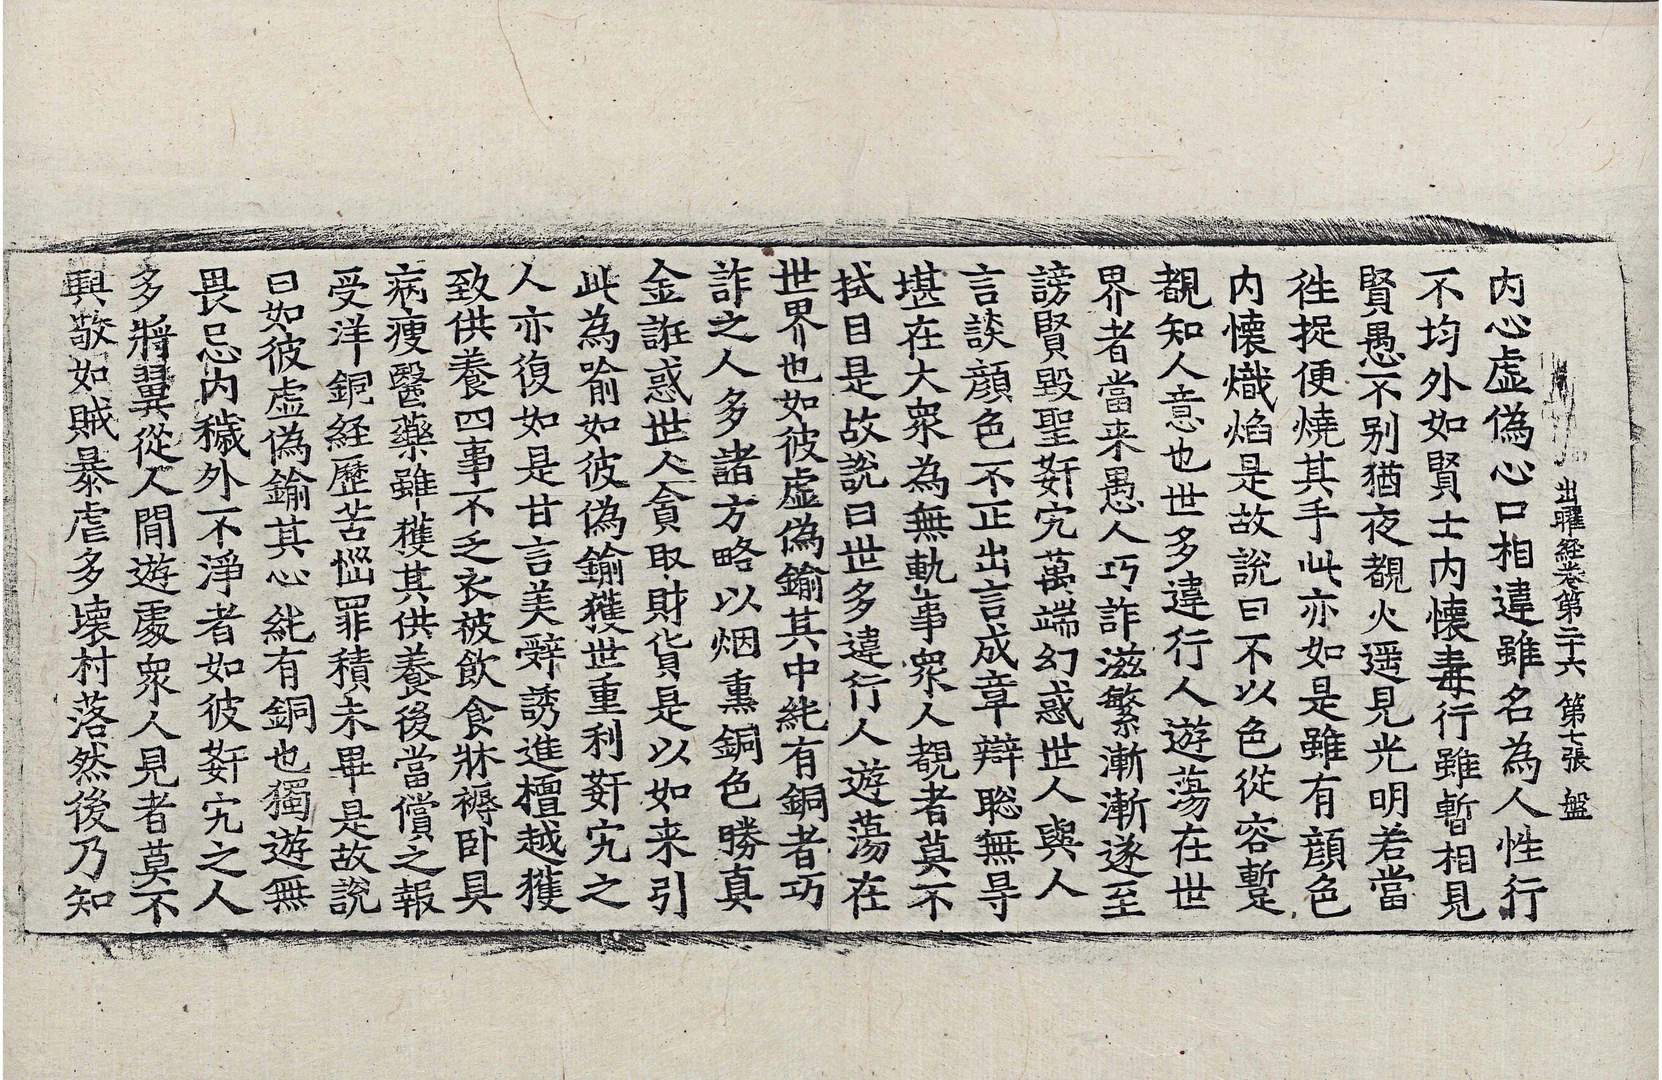 出曜經卷第二十六 第七張 盤
内心虛偽心口相違雖名為人性行
不均外如賢士内懷毒行雖暫相見
賢愚不别猶夜覩火遥見光明若當
徃捉便燒其手此亦如是雖有顔色
内懷熾焰是故說曰不以色從容暫
覩知人意也世多違行人遊蕩在世
界者當来愚人巧詐滋繁漸漸遂至
謗賢毀聖姧宄萬端幻惑世人與人
言談顔色不正出言成章辯聡無㝵
堪在大衆為無軌事衆人覩者莫不
拭目是故說曰世多違行人遊蕩在
世界也如彼虛偽鍮其中純有銅者巧
詐之人多諸方略以烟熏銅色勝真
金誑惑世人貪取財貨是以如来引
此為喻如彼偽鍮獲世重利姧宄之
人亦復如是甘言美辭誘進檀越獲
致供養四事不乏衣被飲食牀褥卧具
病瘦醫藥雖獲其供養後當償之報
受洋銅経歷苦惱罪積未畢是故說
曰如彼虛偽鍮其心純有銅也獨遊無
畏忌内穢外不淨者如彼姧宄之人
多將翼從人間遊處衆人見者莫不
興敬如賊暴虐多壊村落然後乃知